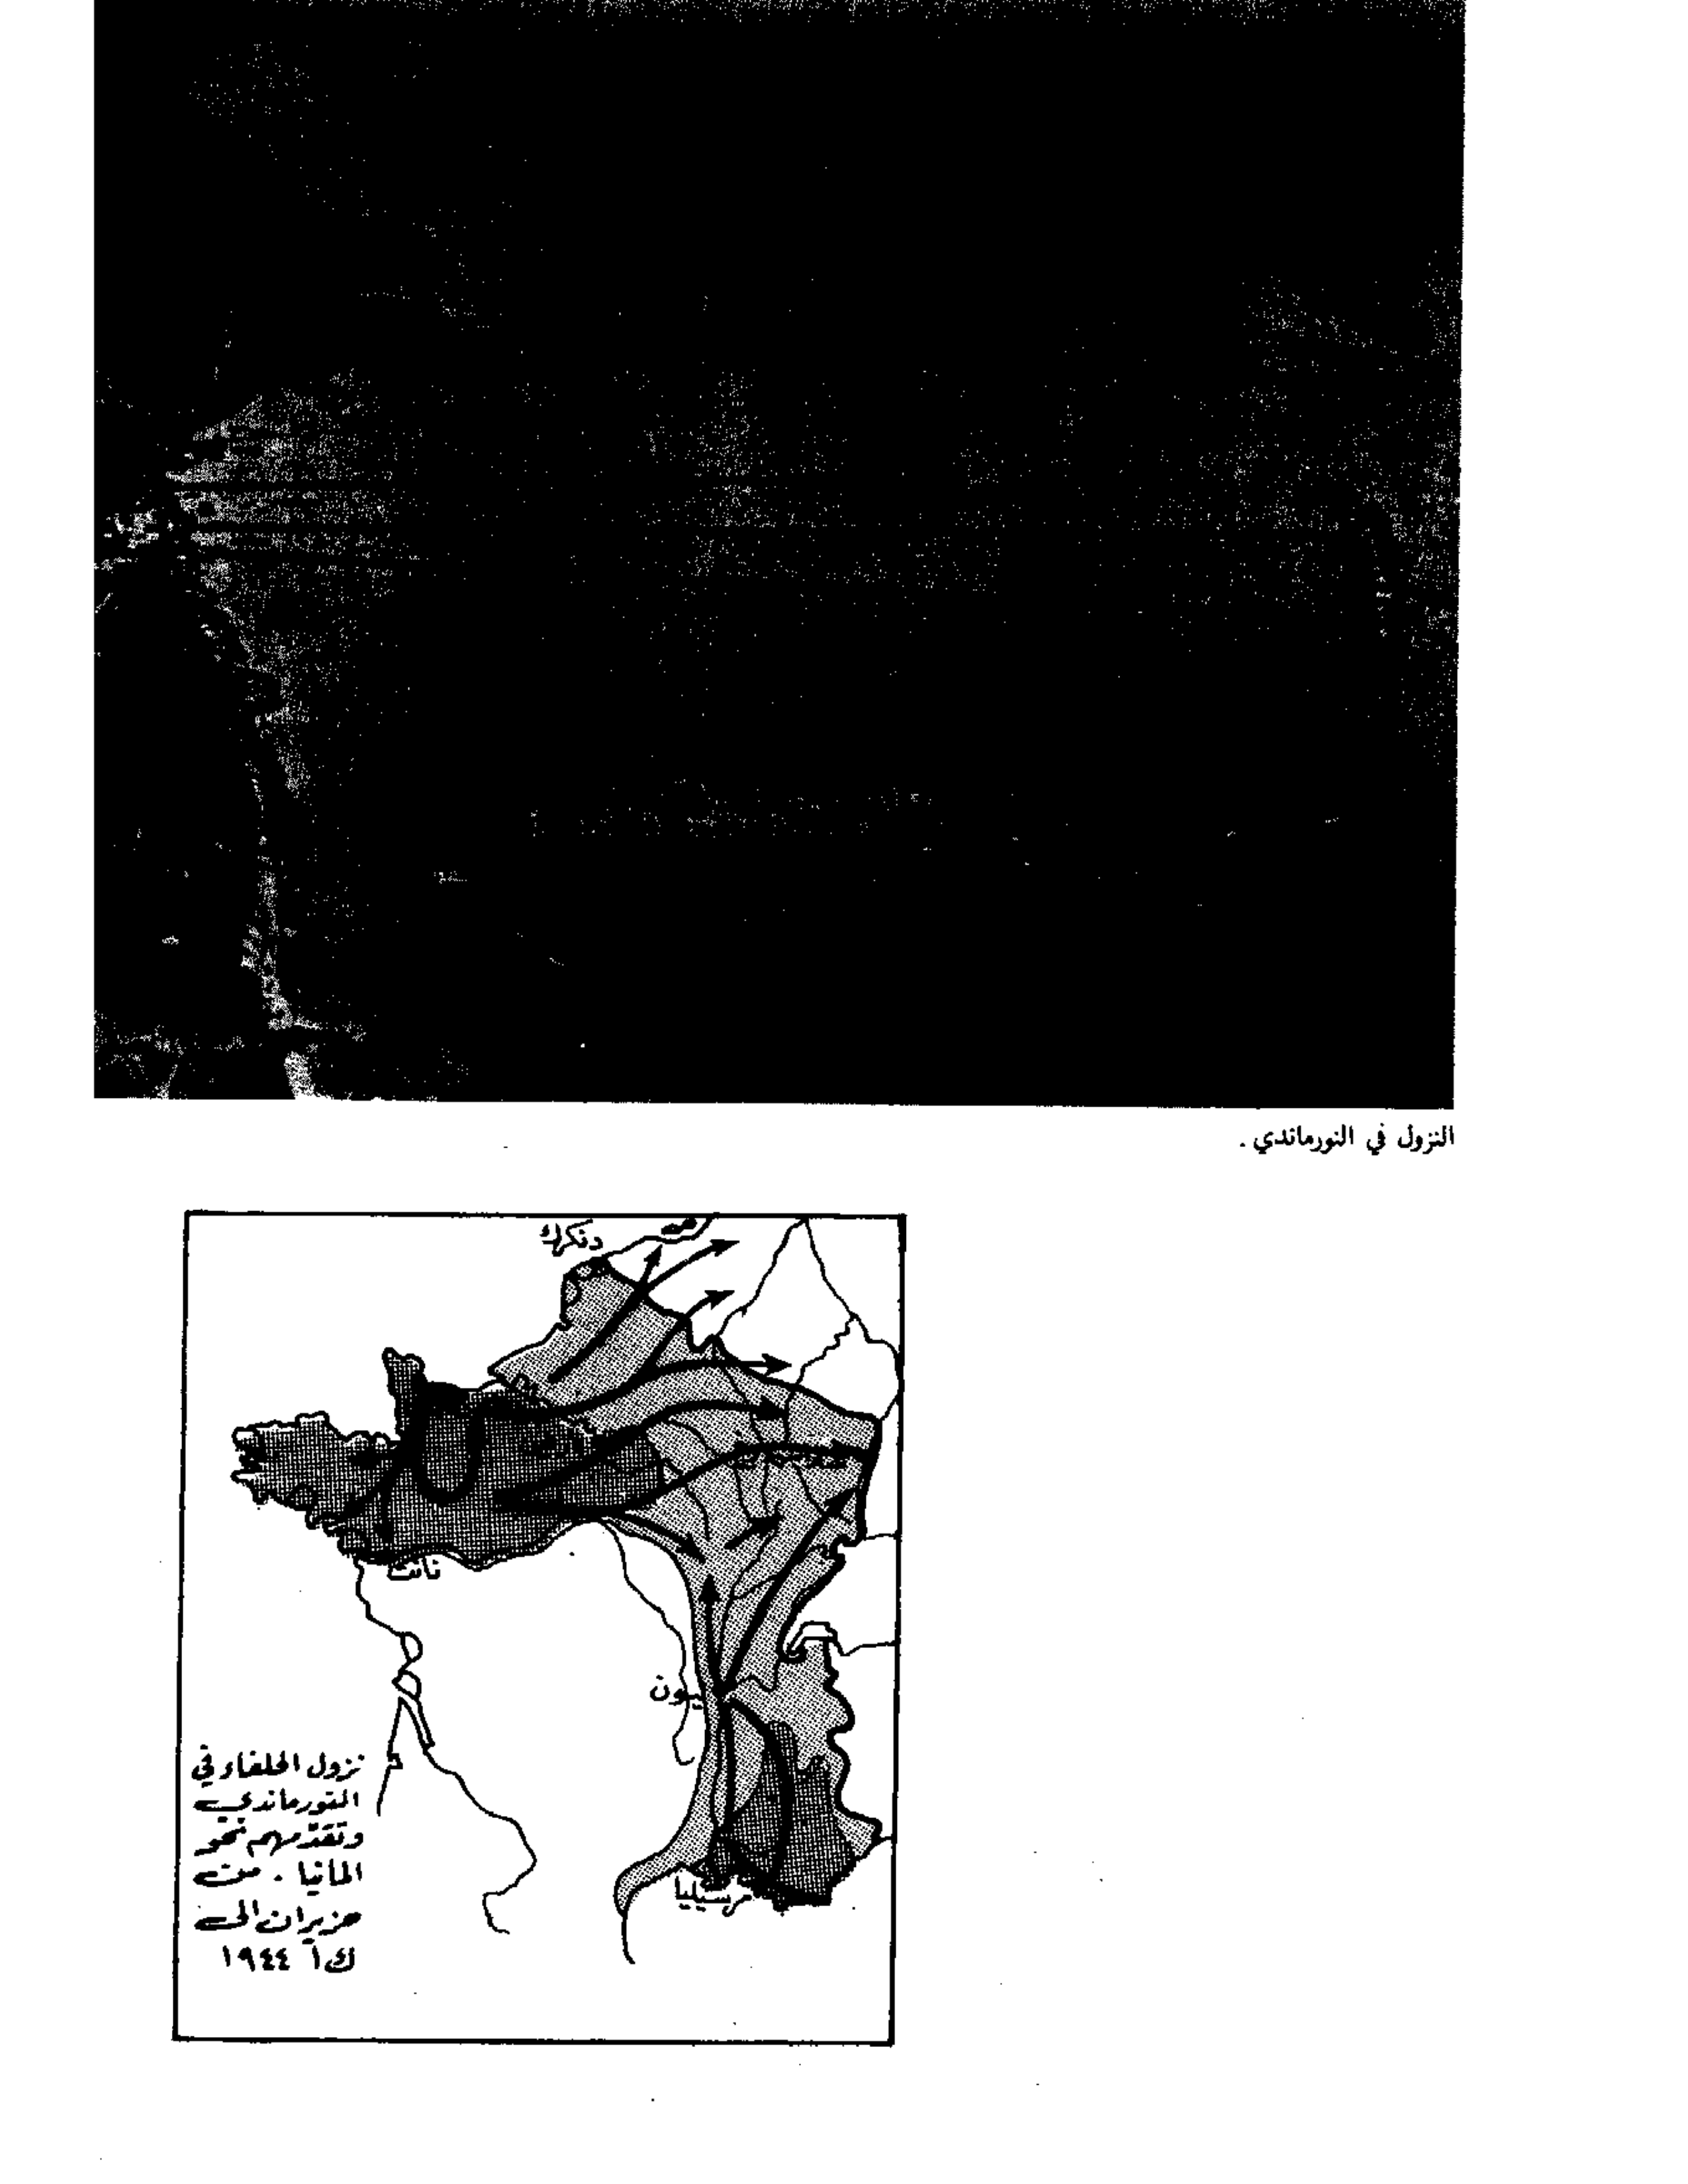 النزول في النورماندي .
دنكرك
نانت
ليون
مرسيليا
نزول الحلفاء في
النورماندي
وتقدّمهم نحو
المانيا . من
حزيران الى
ك١ ١٩٤٤